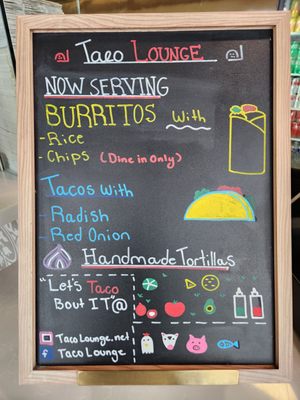 Taco LOUNGE
NOW SERVING
BURRITOS With
- Rice
- Chips (Dine in Only)
Tacos With
- Radish
- Red Onion
Handmade Tortillas
"Let's Taco
Bout IT"@
TacoLounge.net
f Taco Lounge